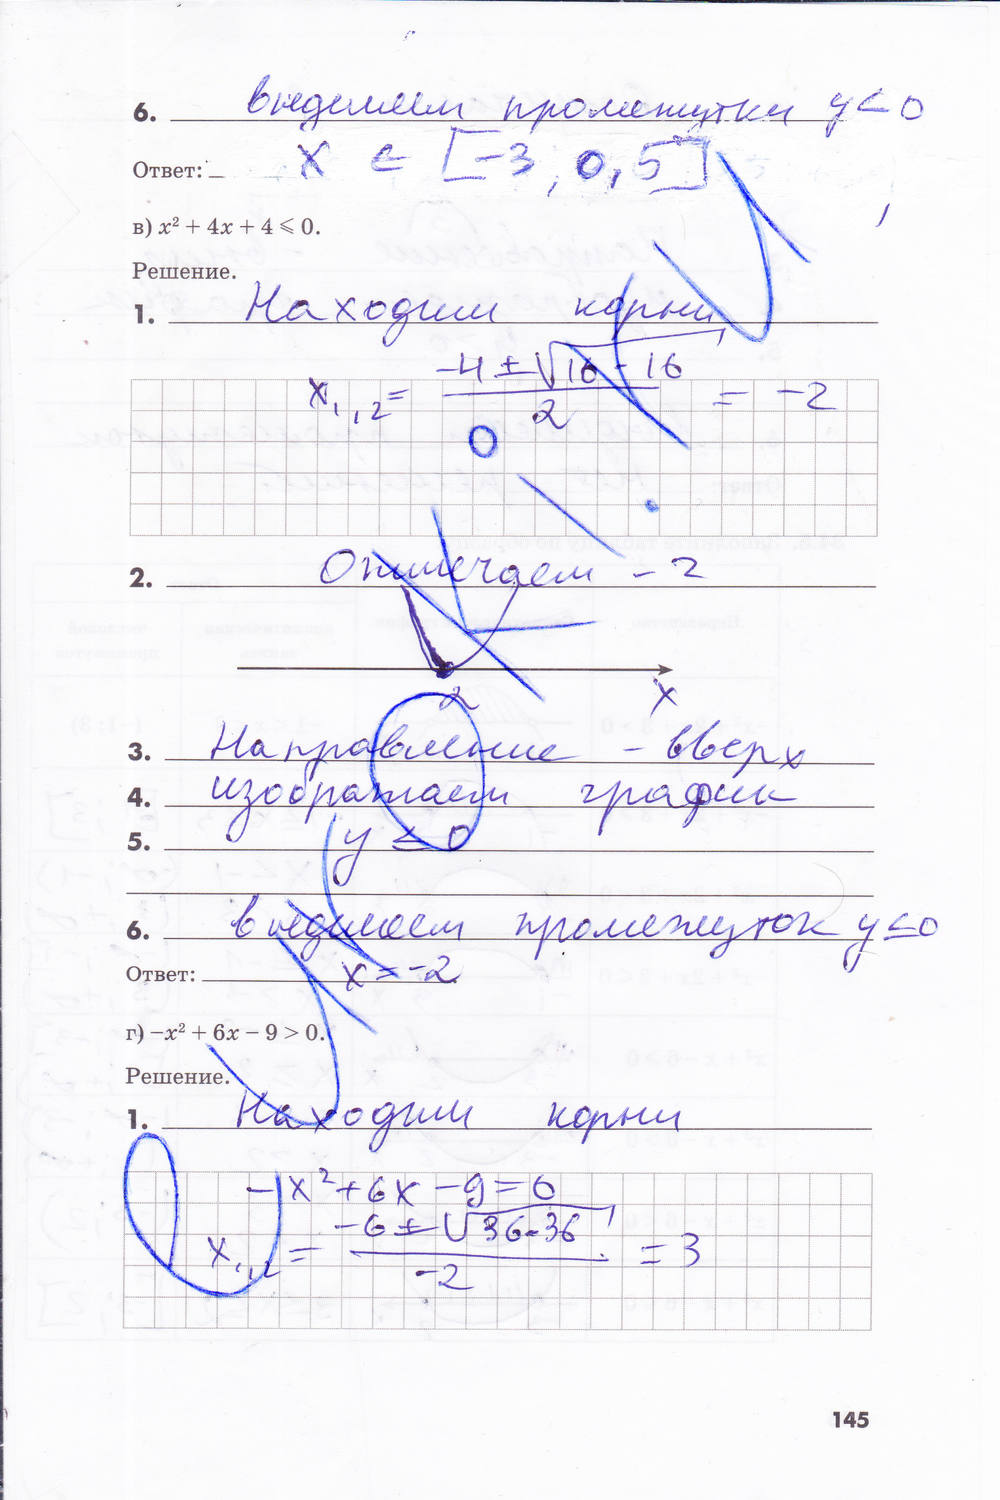 6. выделяем промежутки y < 0
Ответ: x ∈ [-3, 0,5]
в) x² + 4x + 4 ⩽ 0.
Решение.
1. Находим корни
x₁,₂ = (-4 ± √16 - 16) / 2 = -2
2. Отмечаем - 2
2 x
3. Направление - вверх
4. изображаем график
5. y ≤ 0
6. выделяем промежуток y ≤ 0
Ответ: x = -2
г) −x² + 6x − 9 > 0.
Решение.
1. Находим корни
-x² + 6x - 9 = 0
x₁,₂ = (-6 ± √36-36) / -2 = 3
145